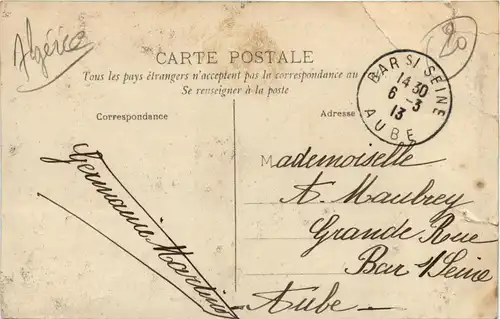 Algérie
20
CARTE POSTALE
Tous les pays étrangers n'acceptent pas la correspondance au
Se renseigner à la poste
BAR S/ SEINE
14 30
6 - 3
13
AUBE
Correspondance
Adresse
Germaine Martin
Mademoiselle
A. Maubrey
Grande Rue
Bar s/Seine
Aube